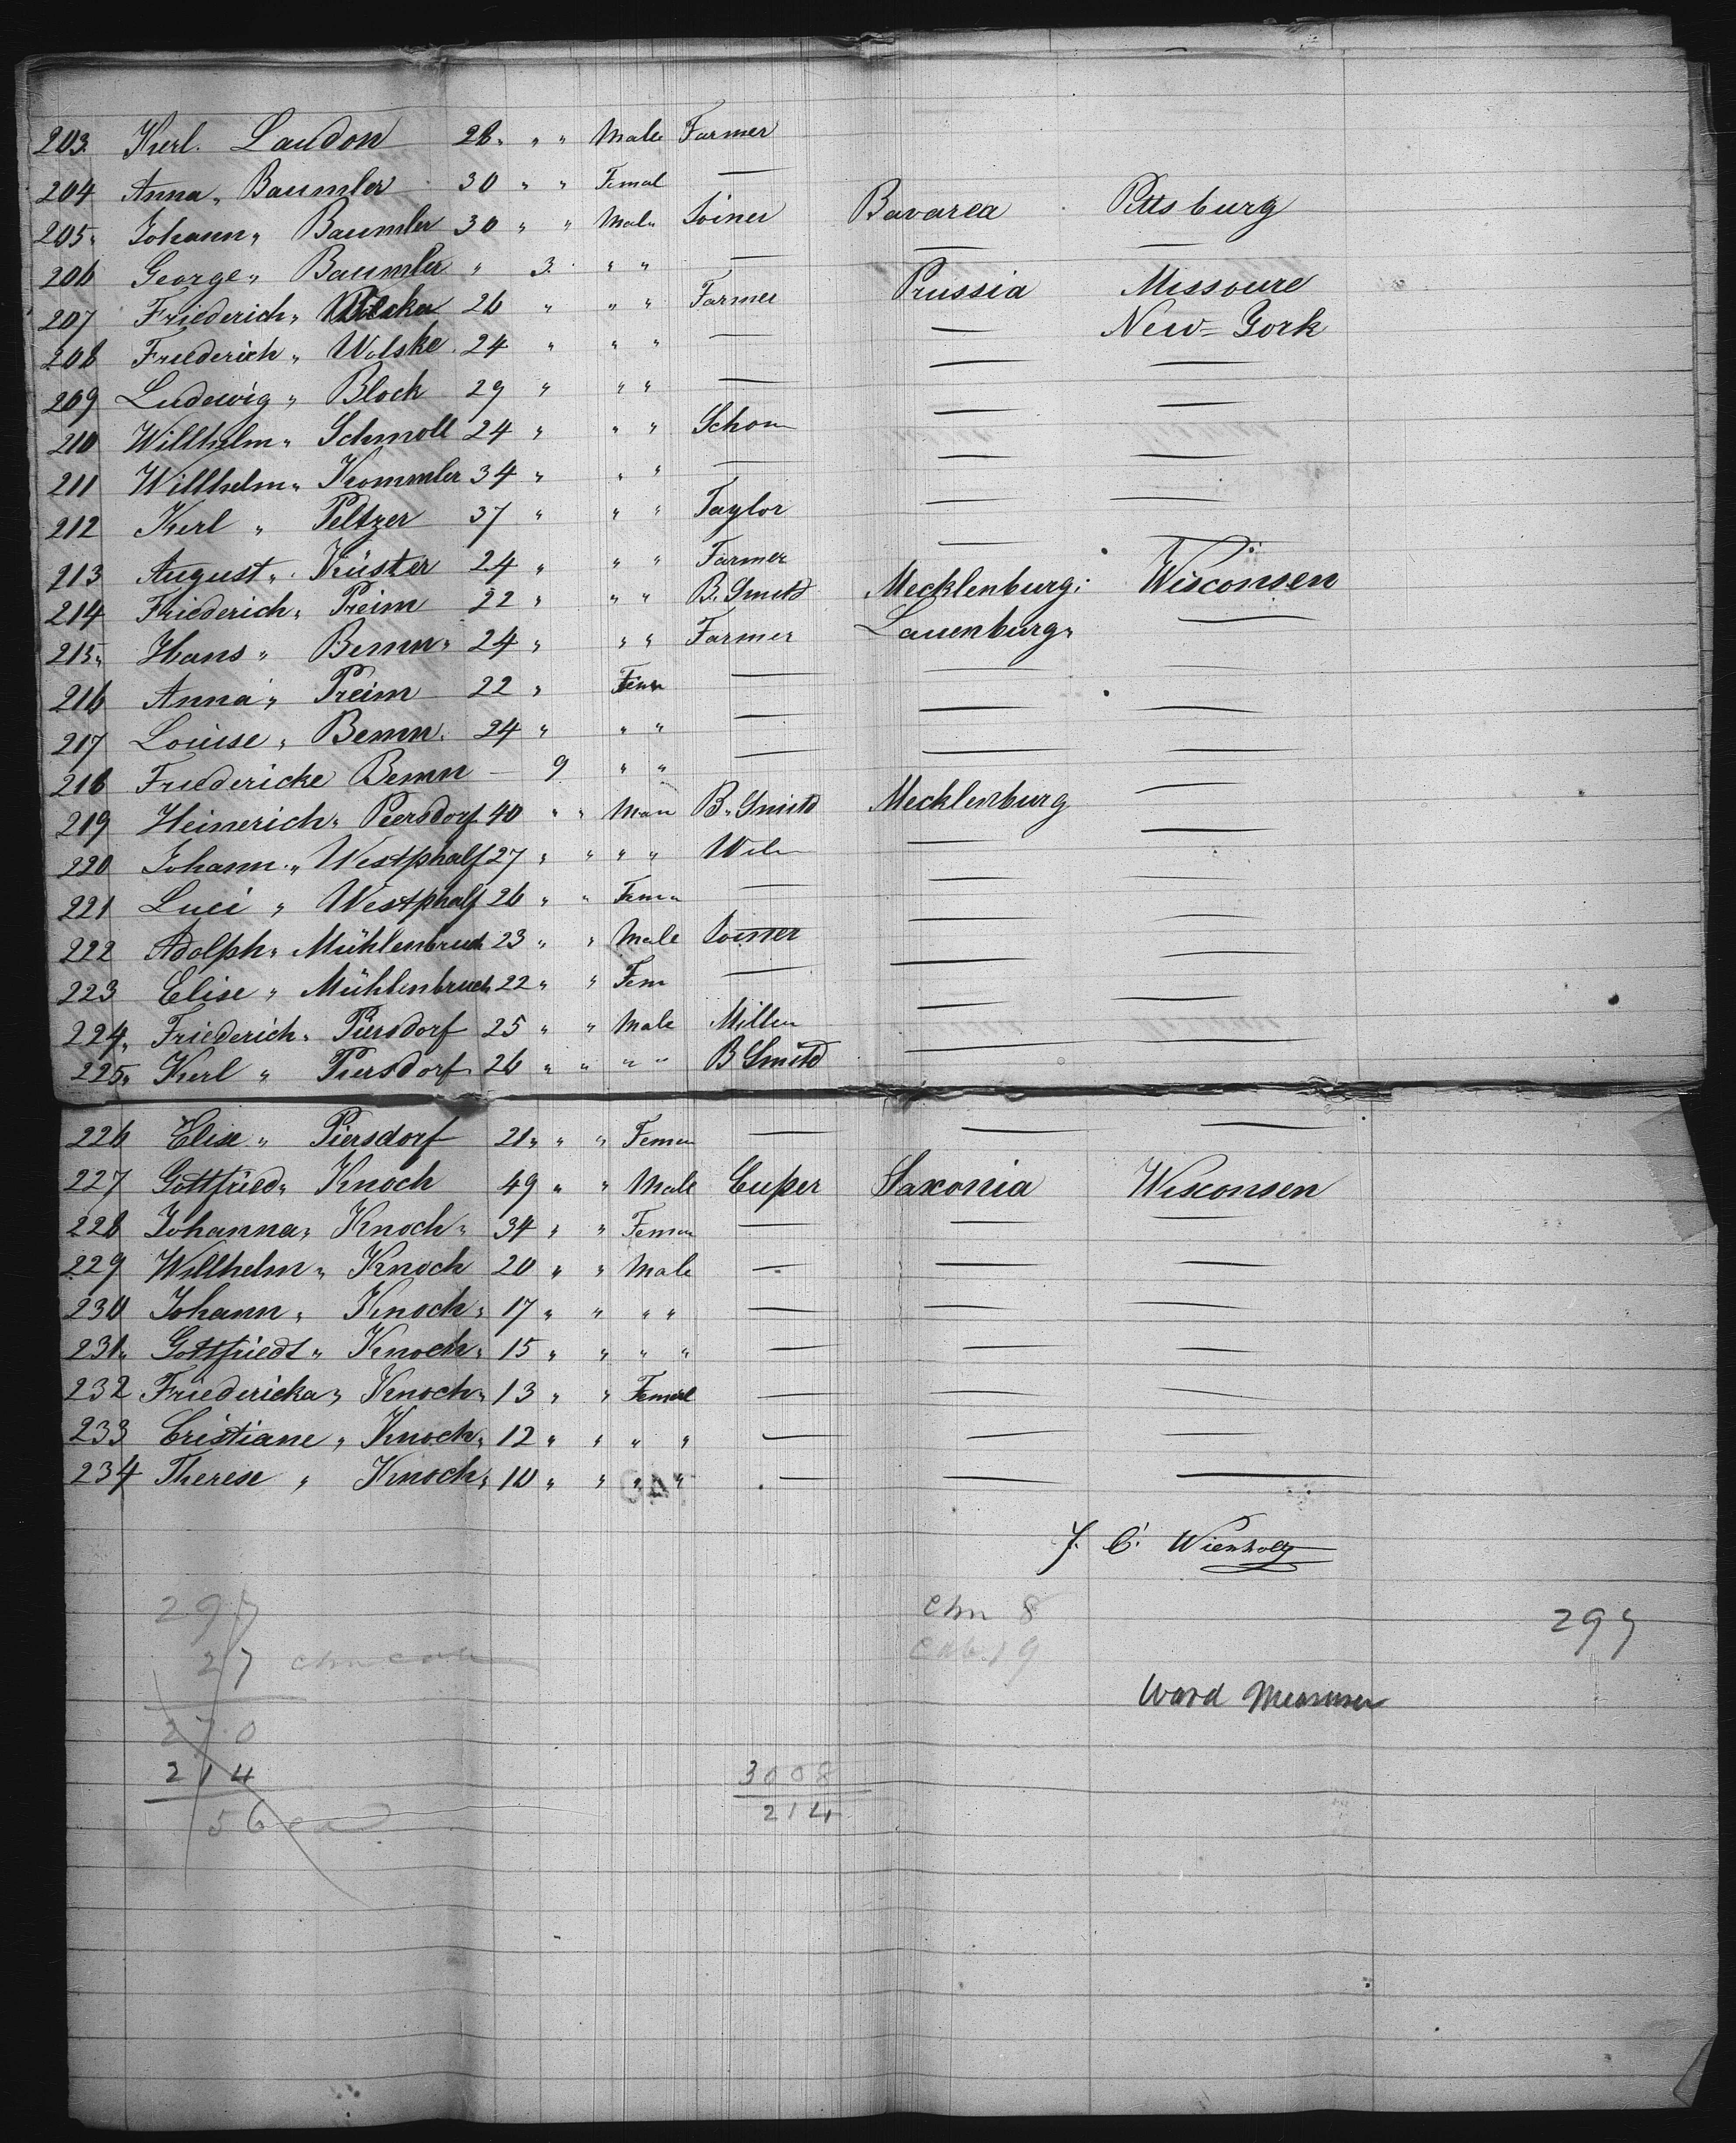 203. Kerl. Laudon 28 " " Male Farmer
204 Anna " Baumler 30 " " Femal —
205 " Johann " Baumler 30 " " Male Joiner Bavarea Pittsburg
206 George " Baumler " 3. " " — — —
207 Friederich " 26 " " " Farmer Prussia Missoure
208 Friederich " Wolske 24 " " " — — New-York
209 Ludewig " Block 29 " " " — — —
210 Willhelm " Schmoll 24 " " " — —
211 Willhelm " Krommler 34 " " " — — —
212 Kerl " Peltzer 37 " " " Taylor — —
213 August " Küster 24 " " " Farmer — —
214 Friederich " Preim 22 " " " B. Smitd Mecklenburg Wisconsen
215 " Hans " Bemn " 24 " " " Farmer Lauenburg " —
216 Anna " Preim 22 " Fem — — —
217 Louise " Bemn. 24 " " " — — —
218 Friedericke Bemn — 9 " " — — —
219 Heinerich " Piersdorf 40 " " Man B. Smitd Mecklenburg —
220 Johann " Westphalf 27 " " " " — —
221 Luci " Westphalf 26 " " Fem — — —
222 Adolph " Mühlenbruch 23 " " Male Joiner — —
223 Elise " Mühlenbruch 22 " " Fem — — —
224 " Friederich " Piersdorf 25 " " Male Miller — —
225 " Kerl " Piersdorf 26 " " " " B Smitd — —
226 Elise " Piersdorf 21 " " " Femen — — —
227 Gottfried " Knoch 49 " " Male Cuper Saxonia Wisconsen
228 Johanna " Knoch " 34 " " Femen — — —
229 Willhelm " Knoch 20 " " Male — — —
230 Johann " Knoch " 17 " " " " — — —
231 " Gottfriedt " Knoch " 15 " " " " — — —
232 Friedericka " Knoch " 13 " " Femal — — —
233 Cristiane " Knoch " 12 " " " " — — —
234 Therese " Knoch " 10 " " " " — — —
J. C. Wienholz
297 chn 8 297
27
Ward
270
214 3008
56 214